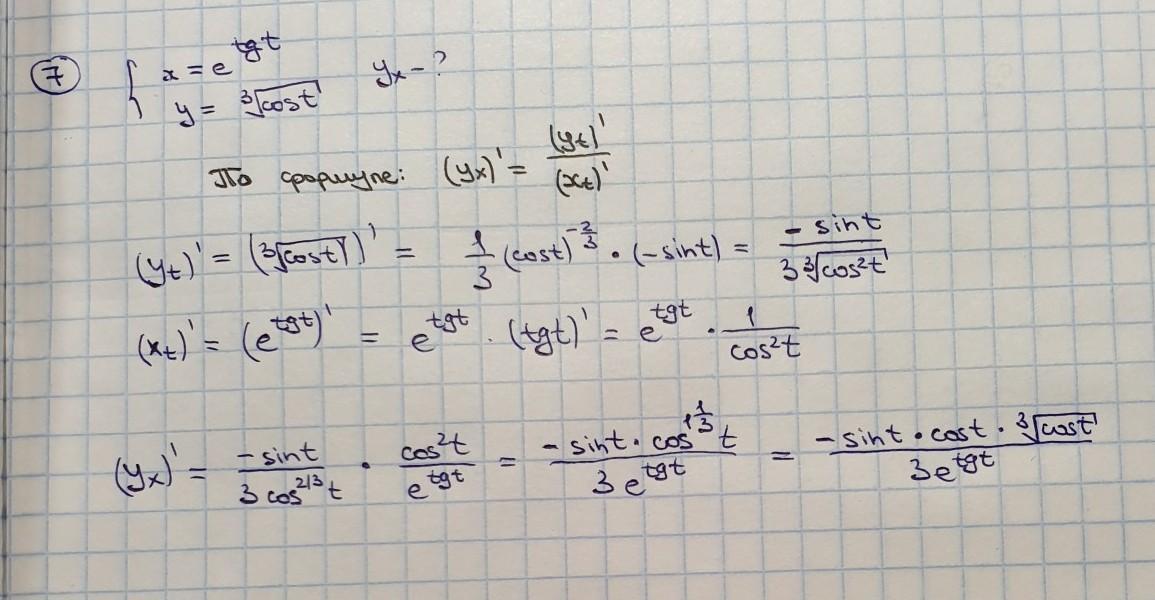 7 { x = e^{tg t} y_x - ?
y = ∛(cos t)
По формуле: (y_x)' = (y_t)' / (x_t)'
(y_t)' = (∛(cos t))' = 1/3 (cos t)^{-2/3} · (-sin t) = -sin t / (3 ∛(cos²t))
(x_t)' = (e^{tg t})' = e^{tg t} · (tg t)' = e^{tg t} · 1/cos²t
(y_x)' = -sin t / (3 cos^{2/3} t) · cos²t / e^{tg t} = -sin t · cos^{1 1/3} t / (3 e^{tg t}) = -sin t · cos t · ∛(cos t) / (3 e^{tg t})